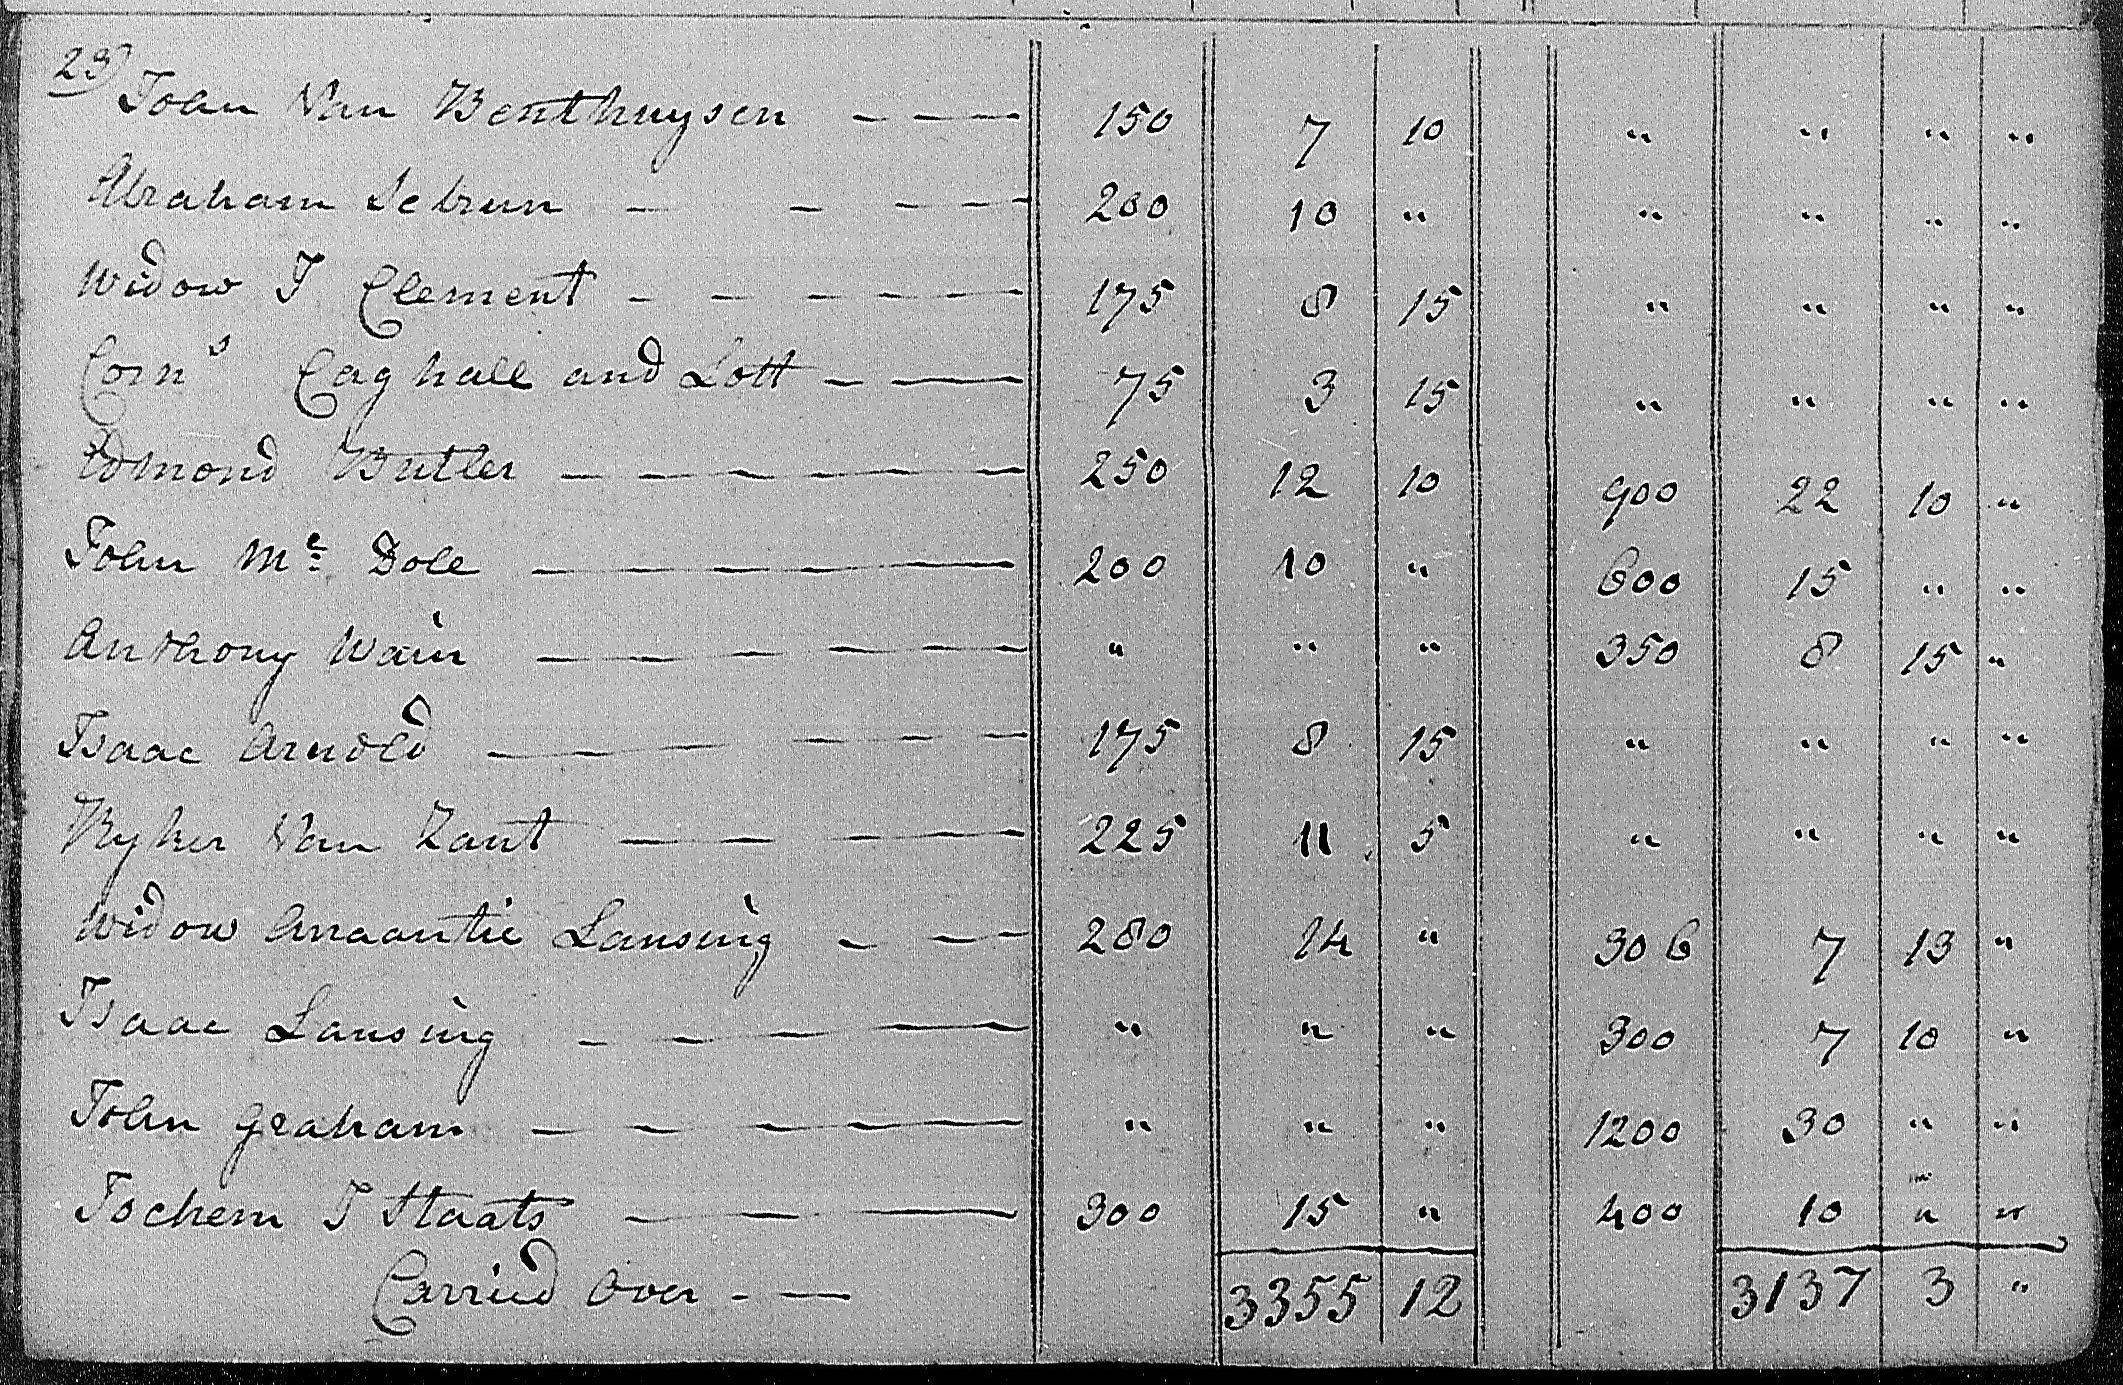 23
John Van Benthuysen — — — 150 7 10 " " " "
Abraham Schrun — — — — 200 10 " " " " "
Widow J Clement — — — — — 175 8 15 " " " "
Corns Caghall and Lott — — 75 3 15 " " " "
Edmond Butler — — — — — 250 12 10 900 22 10 "
John Mc Dole — — — — — 200 10 " 600 15 " "
Anthony Wain — — — — — " " " 350 8 15 "
Isaac Arnold — — — — — 175 8 15 " " " "
Ryker Van Zant — — — — 225 11 5 " " " "
Widow Anaantie Lansing — — — 280 14 " 306 7 13 "
Isaac Lansing — — — — — " " " 300 7 10 "
John Graham — — — — — " " " 1200 30 " "
Jochem J Staats — — — 300 15 " 400 10 " "
Carried Over - — 3355 12 3137 3 "